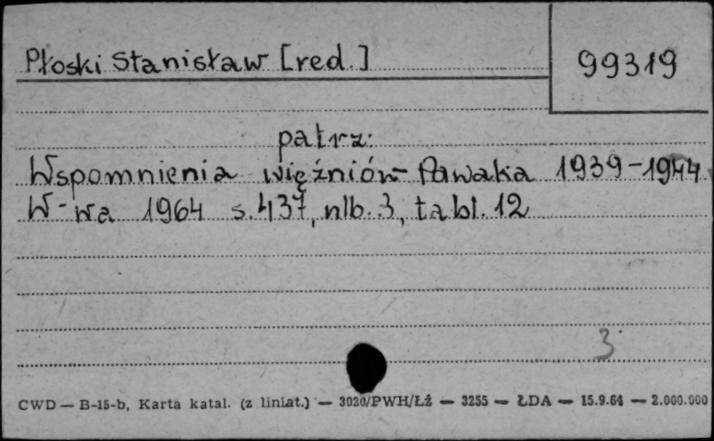 Płoski Stanisław [red.]
99319
patrz:
Wspomnienia więźniów Pawiaka 1939-1944
W-wa 1964 s. 437, nlb. 3, tabl. 12
3
CWD — B-15-b, Karta katal. (z liniat.) — 3020/PWH/Łź — 3255 — ŁDA — 15.9.64 — 2.000.000